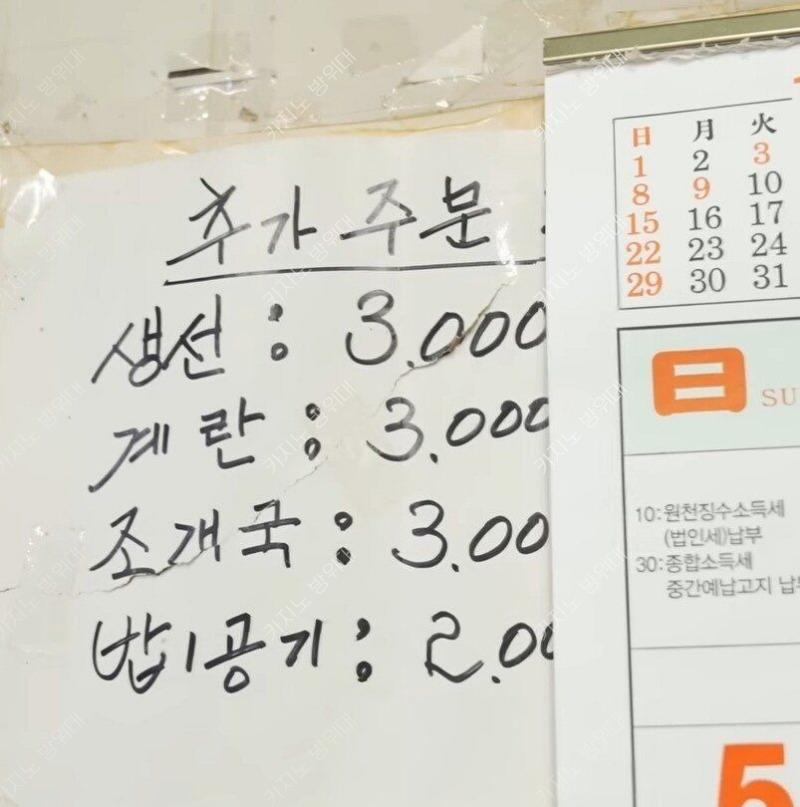 추가 주문
생선 : 3.000
계란 : 3.000
조개국 : 3.00
밥1공기 : 2.00
日 月 火
1 2 3
8 9 10
15 16 17
22 23 24
29 30 31
日 SU
10:원천징수소득세
(법인세)납부
30:종합소득세
중간예납고지 납부
5
카지노 방위대